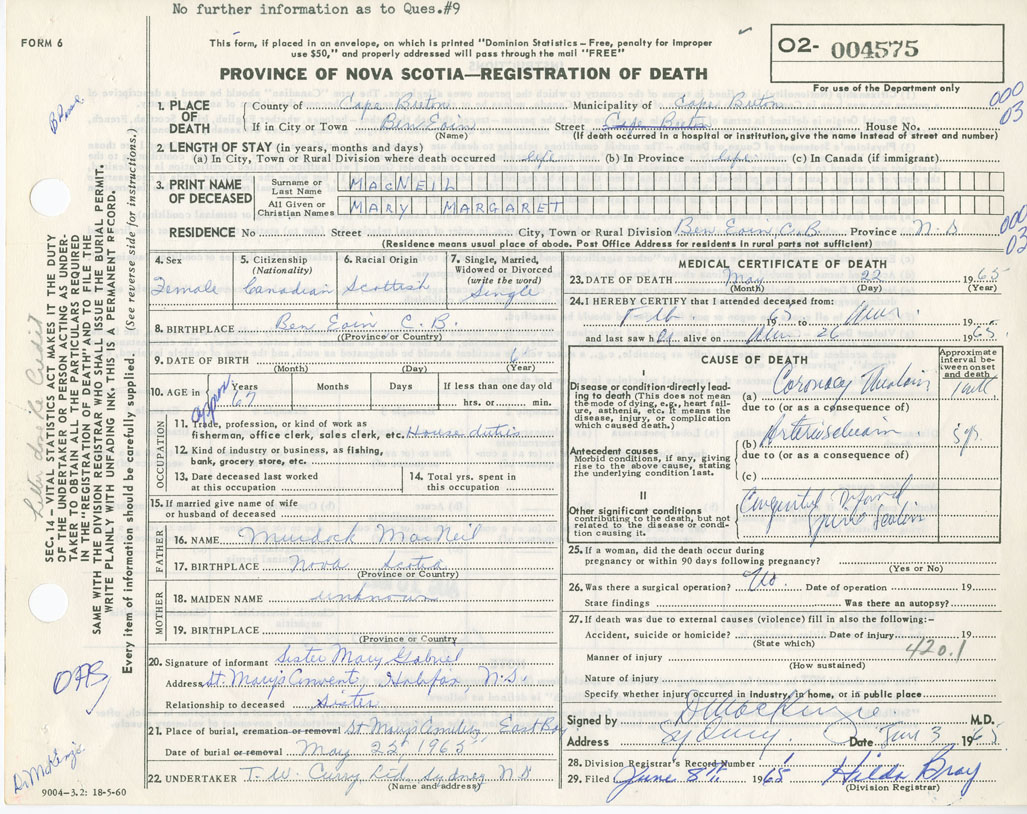 No further information as to Ques.#9
FORM 6
This form, if placed in an envelope, on which is printed "Dominion Statistics – Free, penalty for improper
use $50," and properly addressed will pass through the mail "FREE"
PROVINCE OF NOVA SCOTIA—REGISTRATION OF DEATH
O2- 004575
For use of the Department only
000
03
1. PLACE OF DEATH
County of Cape Breton Municipality of Cape Breton
If in City or Town Ben Eoin Street Cape Breton House No.
(Name) (If death occurred in hospital or institution, give the name instead of street and number)
2. LENGTH OF STAY (in years, months and days)
(a) In City, Town or Rural Division where death occurred life (b) In Province life (c) In Canada (if immigrant)
3. PRINT NAME OF DECEASED
Surname or Last Name MACNEIL
All Given or Christian Names MARY MARGARET
RESIDENCE No Street City, Town or Rural Division Ben Eoin C.B. Province N.S
(Residence means usual place of abode. Post Office Address for residents in rural parts not sufficient)
000
03
4. Sex Female
5. Citizenship (Nationality) Canadian
6. Racial Origin Scottish
7. Single, Married, Widowed or Divorced (write the word) Single
8. BIRTHPLACE Ben Eoin C.B.
(Province or Country)
9. DATE OF BIRTH
(Month) (Day) (Year)
10. AGE in Years 67 Months Days If less than one day old
hrs. or min.
OCCUPATION
11. Trade, profession, or kind of work as
fisherman, office clerk, sales clerk, etc. House duties
12. Kind of industry or business, as fishing,
bank, grocery store, etc.
13. Date deceased last worked at this occupation
14. Total yrs. spent in this occupation
15. If married give name of wife
or husband of deceased
FATHER
16. NAME Murdock MacNeil
17. BIRTHPLACE Nova Scotia
(Province or Country)
MOTHER
18. MAIDEN NAME unknown
19. BIRTHPLACE
(Province or Country)
20. Signature of informant Sister Mary Gabriel
Address St. Mary's Convent, Halifax, N.S.
Relationship to deceased Sister
21. Place of burial, cremation or removal St Mary's Cemetery East Bay
Date of burial or removal May 25th 1965
22. UNDERTAKER T. W. Curry Ltd. Sydney N S
(Name and address)
9004-3.2: 18-5-60
MEDICAL CERTIFICATE OF DEATH
23. DATE OF DEATH May 22 1965
(Month) (Day) (Year)
24. I HEREBY CERTIFY that I attended deceased from:
Feb 1965 to
and last saw her alive on 26 1965.
CAUSE OF DEATH
Approximate interval between onset and death
I
Disease or condition directly leading to death (This does not mean the mode of dying, e.g., heart failure, asthenia, etc. It means the disease, injury, or complication which caused death.)
(a) Coronary
due to (or as a consequence of)
Antecedent causes
Morbid conditions, if any, giving rise to the above cause, stating the underlying condition last.
(b)
due to (or as a consequence of)
(c)
II
Other significant conditions
contributing to the death, but not related to the disease or condition causing it.
25. If a woman, did the death occur during
pregnancy or within 90 days following pregnancy?
(Yes or No)
26. Was there a surgical operation? No. Date of operation 19
State findings Was there an autopsy?
27. If death was due to external causes (violence) fill in also the following:–
Accident, suicide or homicide? Date of injury 19
(State which)
420.1
Manner of injury
(How sustained)
Nature of injury
Specify whether injury occurred in industry, in home, or in public place
Signed by D MacKenzie M.D.
Address Sydney Date June 3 1965
28. Division Registrar's Record Number 1
29. Filed June 8th. 1965 Hilda Bray
(Division Registrar)
SEC. 14 – VITAL STATISTICS ACT MAKES IT THE DUTY
OF THE UNDERTAKER OR PERSON ACTING AS UNDER-
TAKER TO OBTAIN ALL THE PARTICULARS REQUIRED
IN THE "REGISTRATION OF DEATH" AND TO FILE THE
SAME WITH THE DIVISION REGISTRAR WHO SHALL ISSUE THE BURIAL PERMIT.
WRITE PLAINLY WITH UNFADING INK. THIS IS A PERMANENT RECORD.
Every item of information should be carefully supplied. (See reverse side for instructions.)
Dr McKenzie